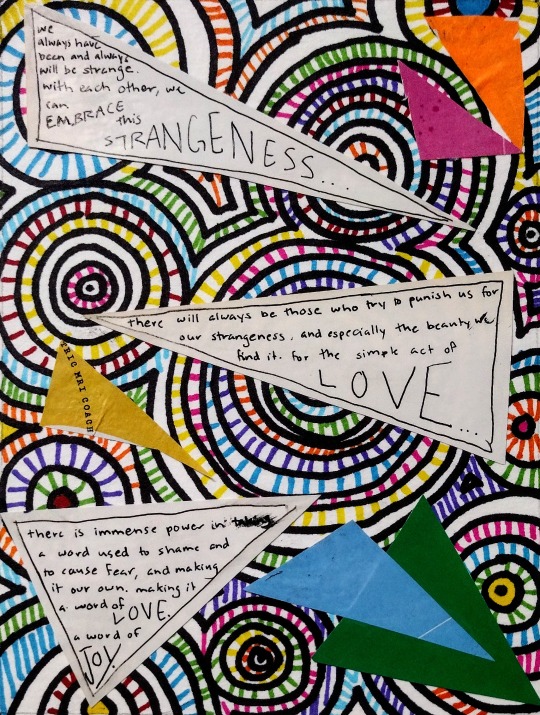 we
always have
been and always
will be strange.
with each other, we
can
EMBRACE
this
STRANGENESS....
there will always be those who try to punish us for
our strangeness, and especially the beauty we
find it. for the simple act of
LOVE...
TRIC MRI COACH
there is immense power in
a word used to shame and
to cause fear, and making
it our own. making it
a word of LOVE.
a word of
JOY.